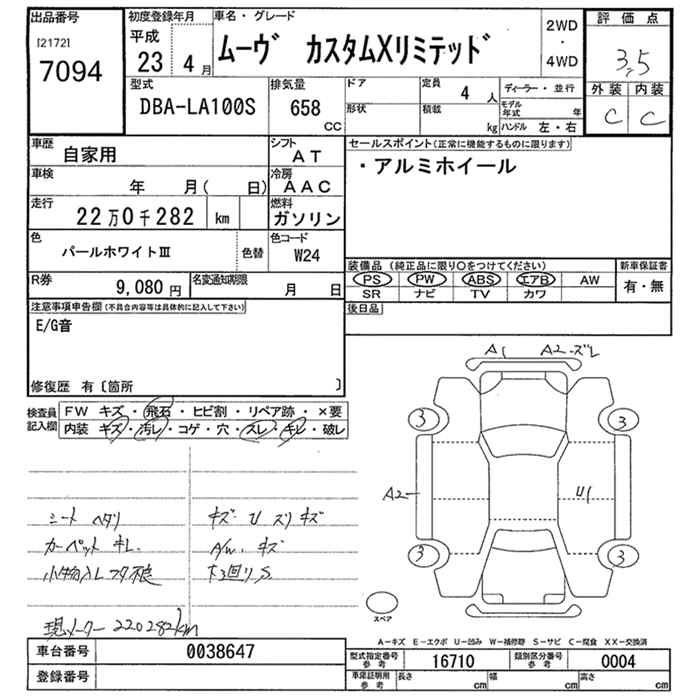 出品番号 初度登録年月 車名・グレード 評価点
[2172]
7094
平成
23 4月
ムーヴ カスタムXリミテッド
2WD
・
4WD
3.5
外装 内装
C C
型式 排気量 ドア 定員 ディーラー・並行
DBA-LA100S 658 cc
4 人
形状 積載 kg モデル年式 年
ハンドル 左・右
車歴 シフト セールスポイント(正常に機能するものに限ります)
自家用 AT ・アルミホイール
車検 年 月( 日) 冷房 AAC
走行 22万0千282 km 燃料 ガソリン
色 パールホワイトⅢ 色替 色コード W24
装備品 (純正品に限り○をつけてください) 新車保証書
PS PW ABS エアB AW 有・無
SR ナビ TV カワ
R券 9,080円 名変通知期限 月 日
後日品
注意事項申告欄(不具合内容等は具体的に記入して下さい)
E/G音
修復歴 有〔箇所 〕
検査員記入欄 FW キズ・飛石・ヒビ割・リペア跡・×要
内装 キズ・汚レ・コゲ・穴・スレ・キレ・破レ
A1 A2-ズレ
3 3
A2 U1
3 3
シート ヘタリ キズ・U スリキズ
カーペット キレ A/W キズ
小物入レフタ不良 下回リS
現メーター 220282km
スペア
A-キズ E-エクボ U-凹み W-補修跡 S-サビ C-腐食 XX-交換済
車台番号 0038647
型式指定番号 参考 16710 類別区分番号 参考 0004
登録番号
車庫証明用 参考 長さ cm 幅 cm 高さ cm